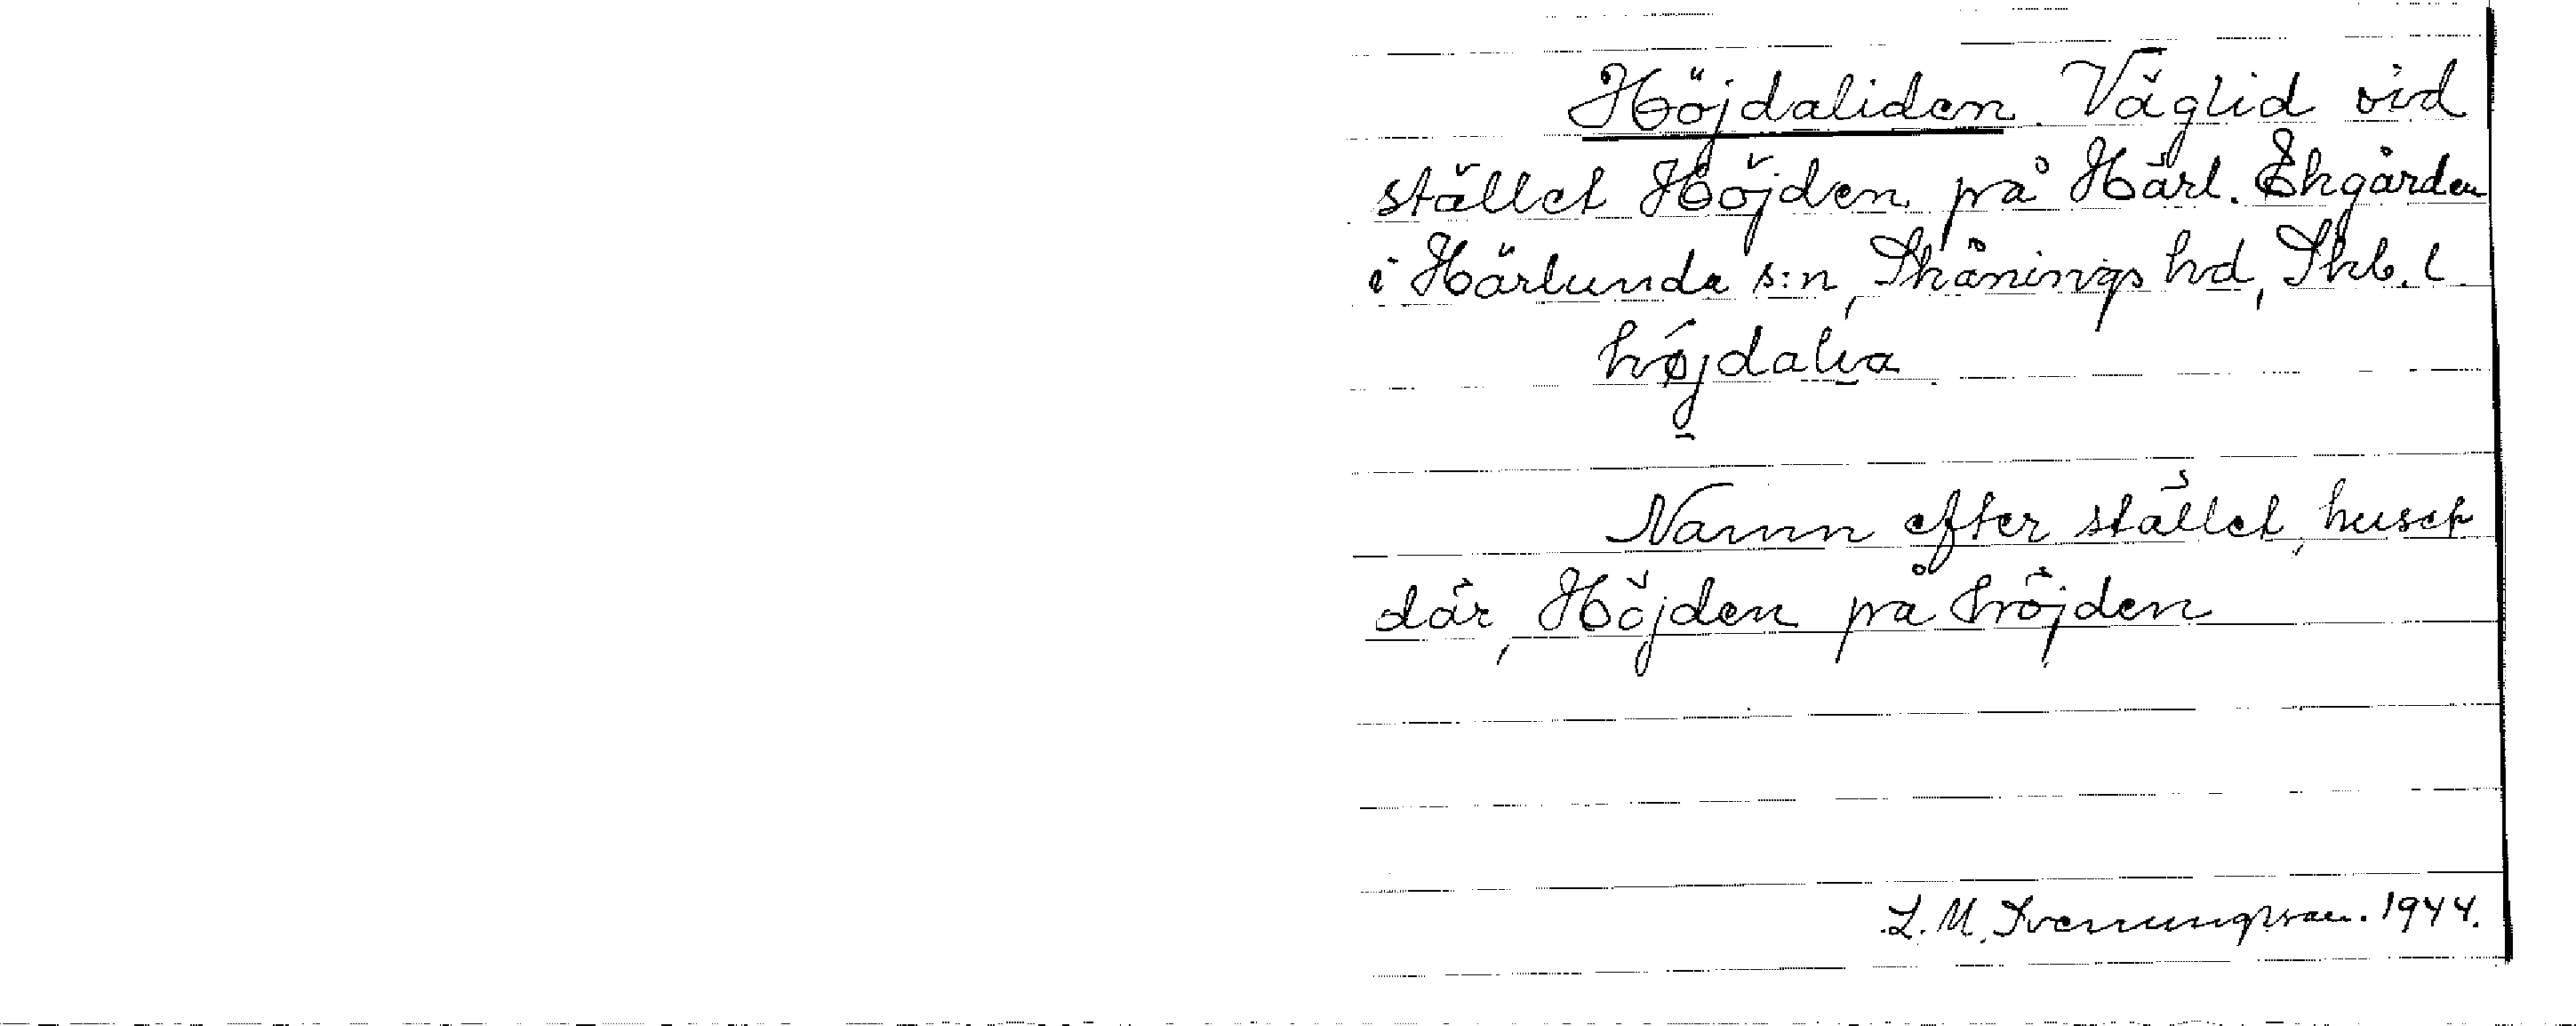 Höjdaliden. Väglid vid
stället Höjden på Härl. Ekgården
i Härlunda s:n, Skånings hd, Skb. l.
højdalia
Namn efter stället, huset
där, Höjden på höjden
L. M. Svenungsson. 1944.